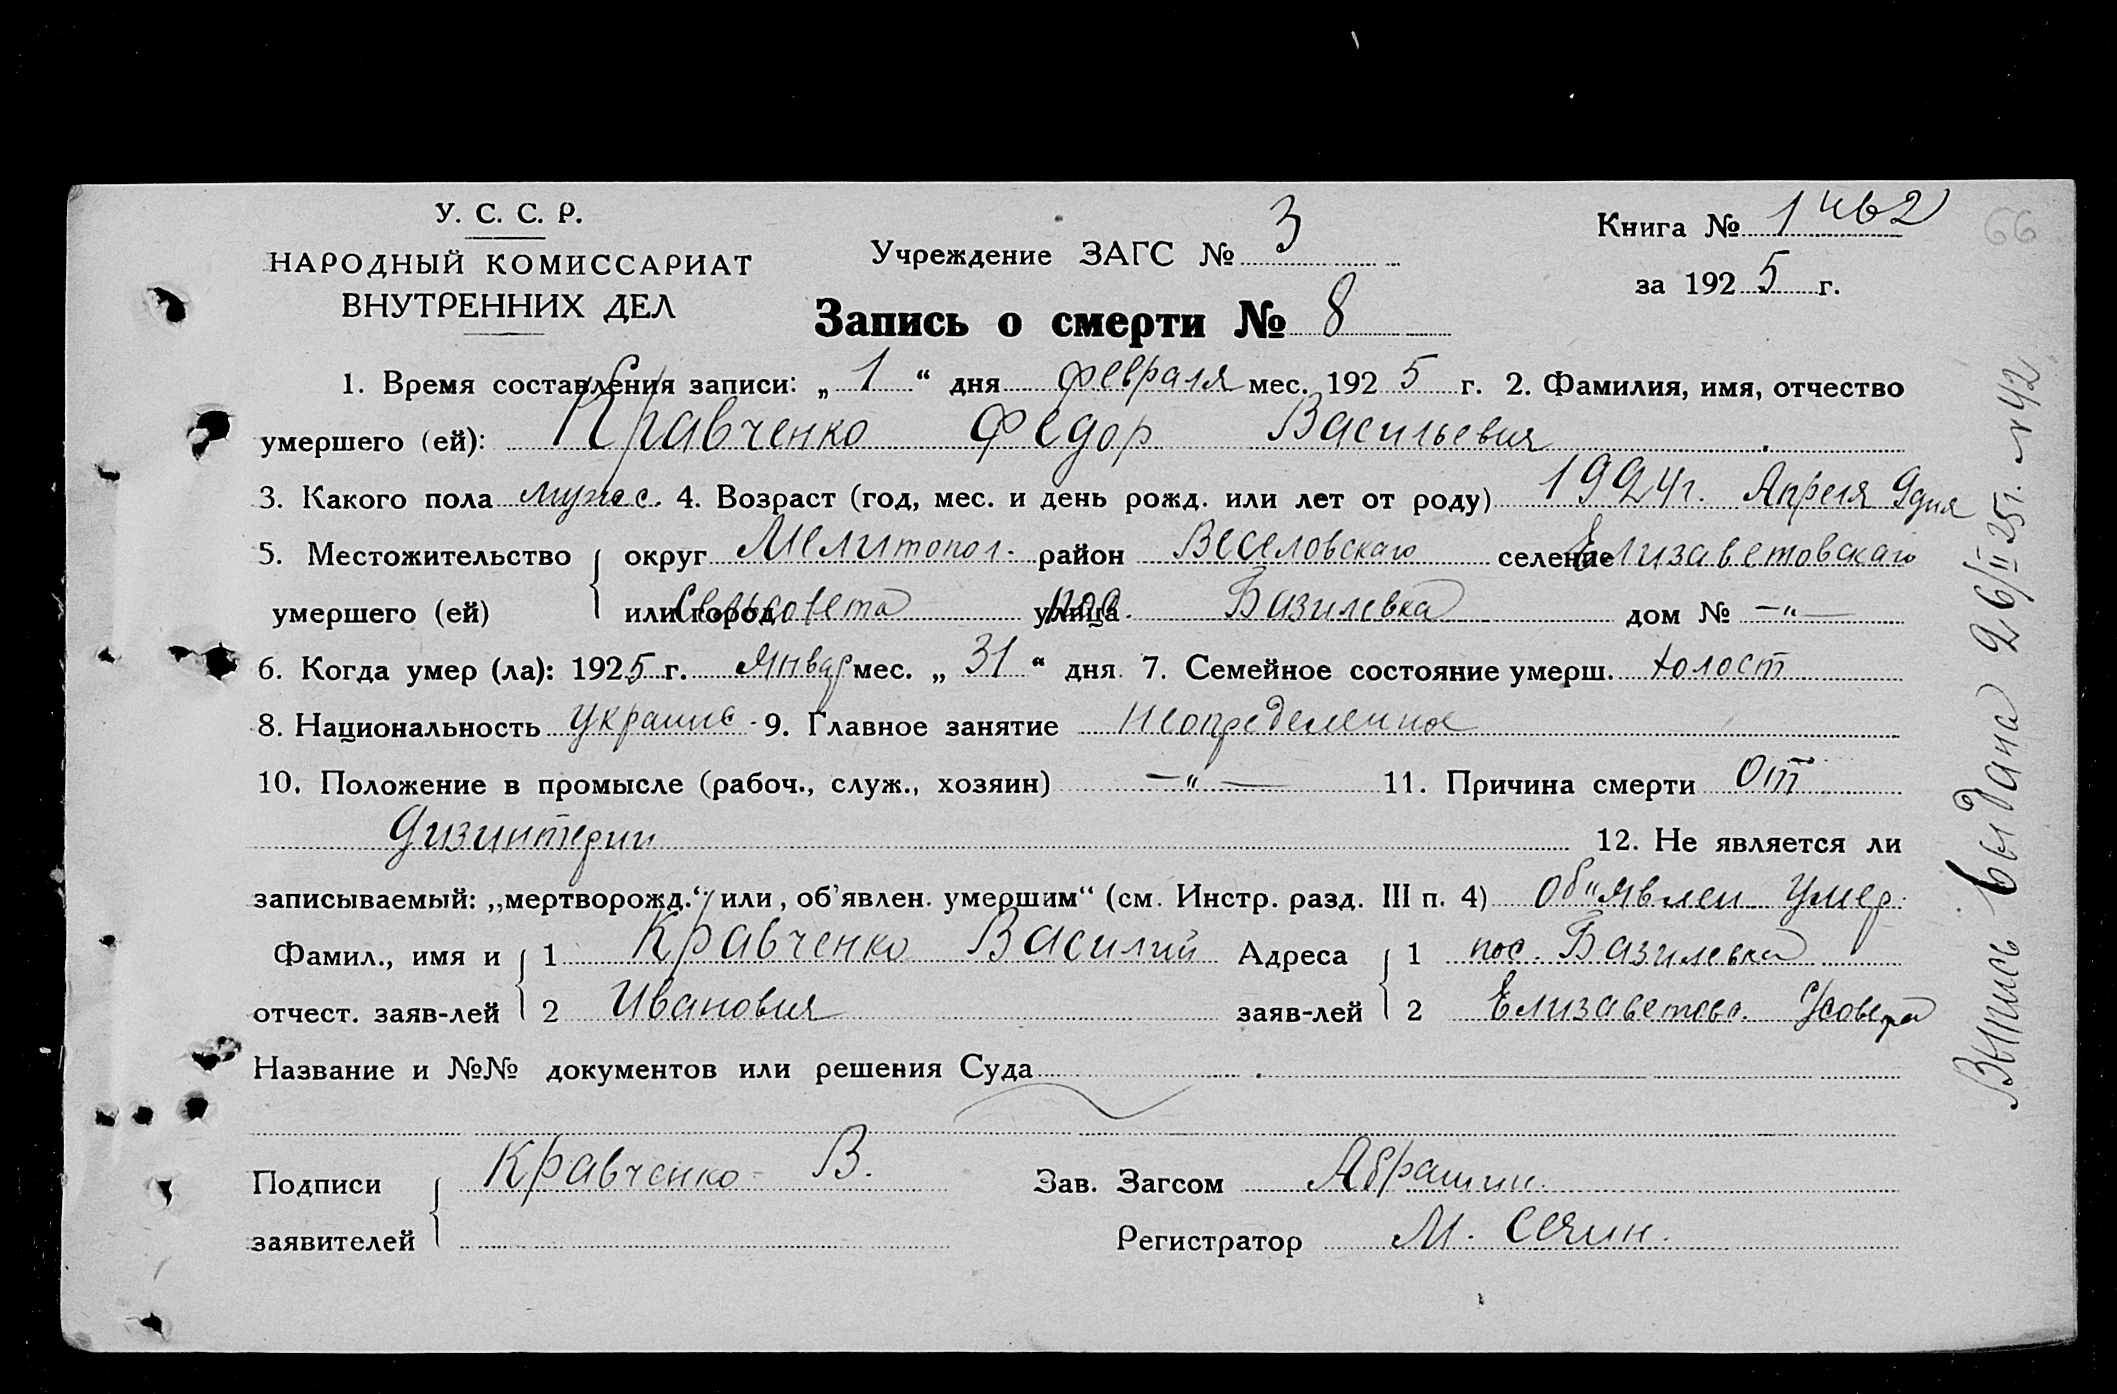 У. С. С. Р.
НАРОДНЫЙ КОМИССАРИАТ
ВНУТРЕННИХ ДЕЛ
Учреждение ЗАГС № 3
Книга № 1 чб 2
66
за 1925 г.
Запись о смерти № 8
1. Время составления записи: „ 1 “ дня февраля мес. 1925 г. 2. Фамилия, имя, отчество
умершего (ей): Кравченко Федор Васильевич
3. Какого пола мужес. 4. Возраст (год, мес. и день рожд. или лет от роду) 1924 г. Апреля 9 дня
5. Местожительство округ Мелитопол. район Веселовскаго селение Елизаветовскаго
умершего (ей) или город Сельсовета улица пос. Базилевка дом № —"—
6. Когда умер (ла): 1925 г. Январ мес. „ 31 “ дня. 7. Семейное состояние умерш. холост
8. Национальность украине. 9. Главное занятие неопределенное
10. Положение в промысле (рабоч., служ., хозяин) —"— 11. Причина смерти от
дизинтерии 12. Не является ли
записываемый: „мертворожд.“ или, об'явлен. умершим“ (см. Инстр. разд. III п. 4) об"явлен умер.
Фамил., имя и 1 Кравченко Василий Адреса 1 пос. Базилевка
отчест. заяв-лей 2 Иванович заяв-лей 2 Елизаветовс. с/совета
Название и №№ документов или решения Суда
Подписи Кравченко В. Зав. Загсом
заявителей Регистратор М.
Выпись выдана 26/II 25 г. № 42